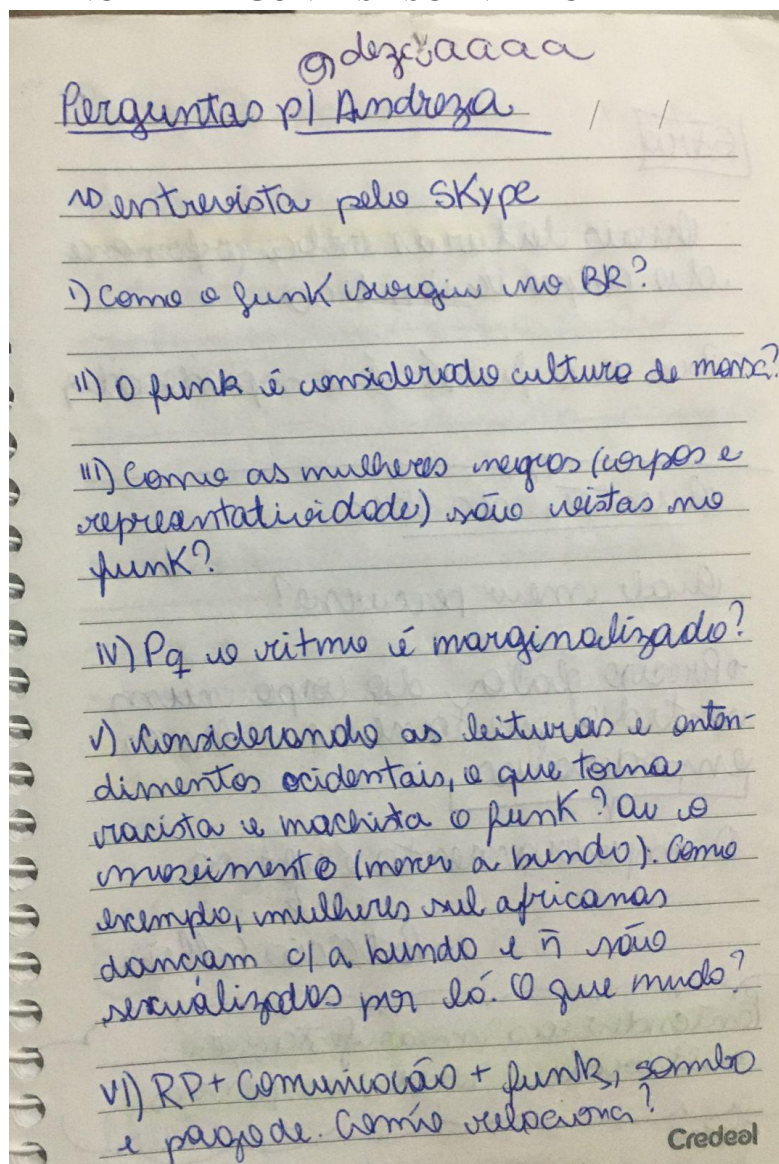 @dezciaaaa
Perguntas p/ Andreza / /
entrevista pelo SKype
I) Como o funk surgiu no BR?
II) O funk é considerado cultura de massa?
III) Como as mulheres negras (corpos e
representatividade) são vistas no
funk?
IV) Pq o ritmo é marginalizado?
V) Considerando as leituras e enten-
dimentos ocidentais, o que torna
racista e machista o funk? Ou o
movimento (mover a bunda). Como
exemplo, mulheres sul africanas
dançam c/ a bunda e ñ são
sexualizadas por lá. O que muda?
VI) RP + Comunicação + funk, samba
e pagode. Como relaciona?
Credeal